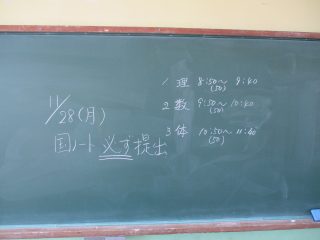 11/28(月)
国ノート 必ず提出
1 理 8:50～9:40
(50)
2 数 9:50～10:40
(50)
3 体 10:50～11:40
(50)